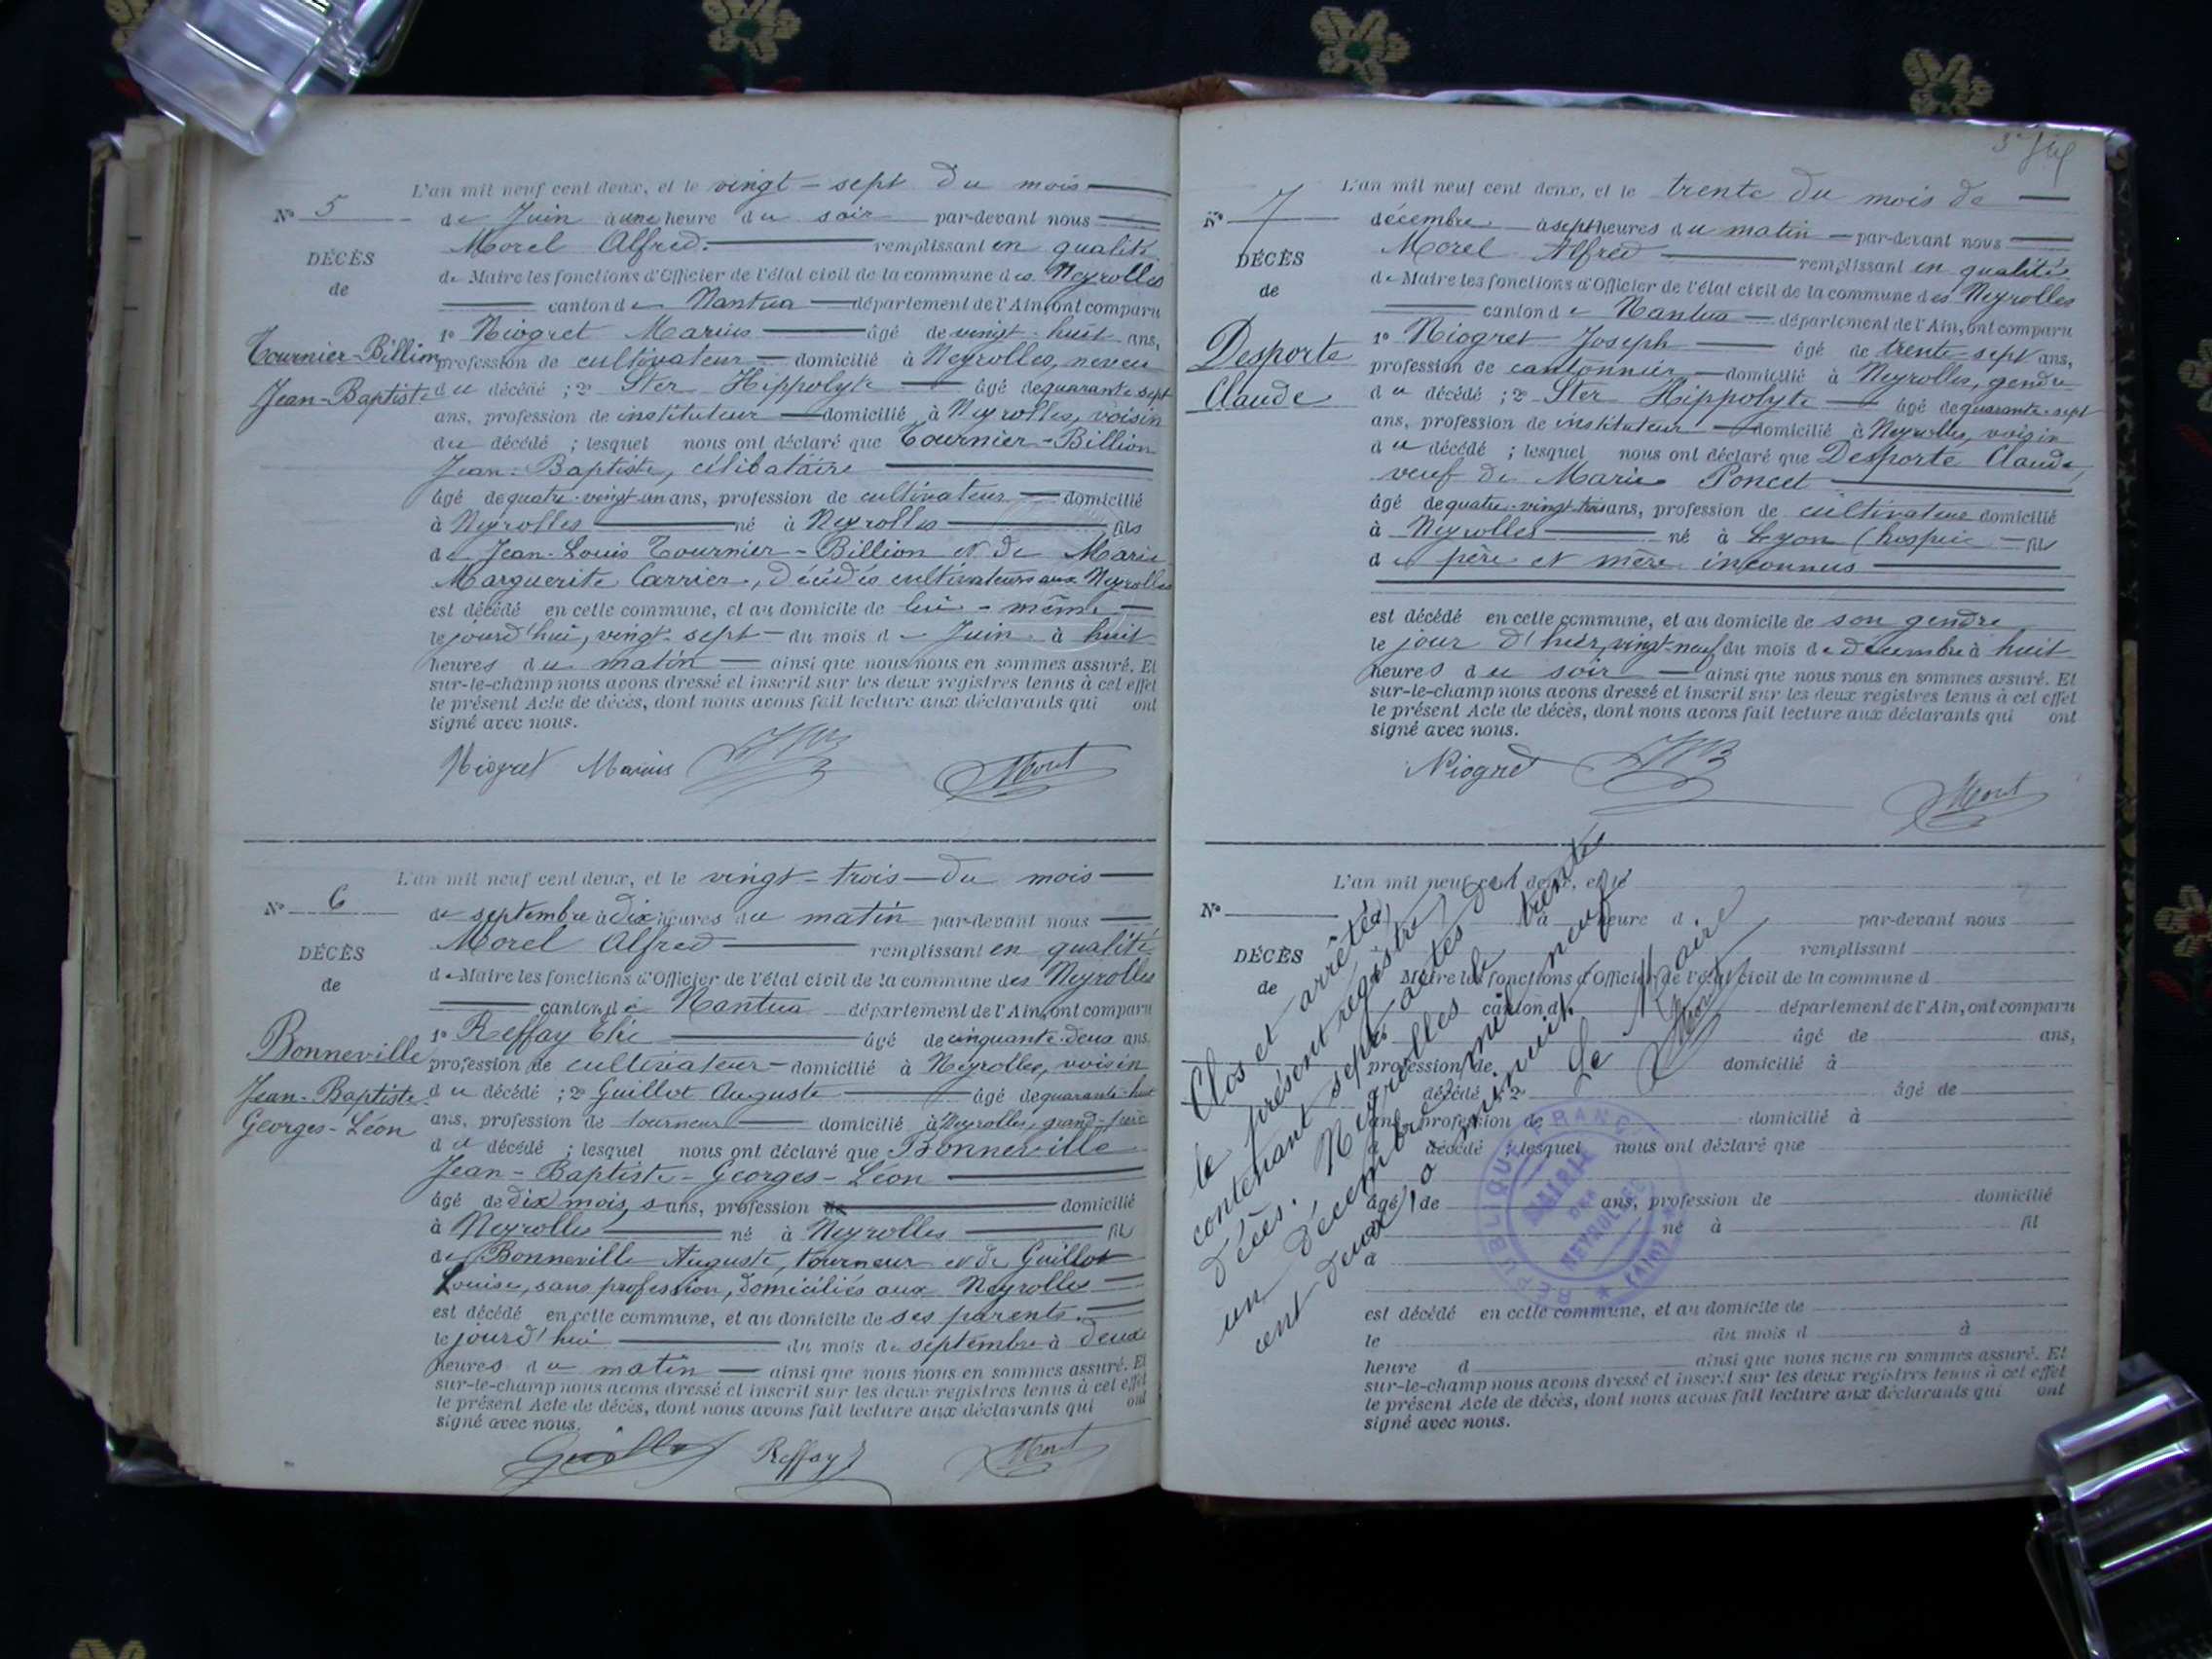 L'an mil neuf cent deux, et le vingt-sept du mois
N° 5
de Juin à une heure du soir par-devant nous
Morel Alfred. remplissant en qualité
DÉCÈS
de Maire les fonctions d'Officier de l'état civil de la commune des Neyrolles
de
canton de Nantua département de l'Ain, ont comparu
1° Niogret Marius âgé de vingt-huit ans,
Tournier-Billion
profession de cultivateur domicilié à Neyrolles, neveu
Jean-Baptiste
du décédé ; 2° Ster Hippolyte âgé de quarante sept
ans, profession de instituteur domicilié à Neyrolles, voisin
du décédé ; lesquel nous ont déclaré que Tournier-Billion
Jean-Baptiste, célibataire
âgé de quatre-vingt-un ans, profession de cultivateur domicilié
à Neyrolles né à Neyrolles fils
de Jean-Louis Tournier-Billion et de Marie
Marguerite Carrier, décédés cultivateurs aux Neyrolles
est décédé en cette commune, et au domicile de lui-même
le jourd'hui, vingt-sept du mois de Juin à huit
heures du matin ainsi que nous nous en sommes assuré. Et
sur-le-champ nous avons dressé et inscrit sur les deux registres tenus à cet effet
le présent Acte de décès, dont nous avons fait lecture aux déclarants qui ont
signé avec nous.
Niogret Marius
L'an mil neuf cent deux, et le vingt-trois du mois
N° 6
de septembre à dix heures du matin par-devant nous
Morel Alfred remplissant en qualité
DÉCÈS
de Maire les fonctions d'Officier de l'état civil de la commune des Neyrolles
de
canton de Nantua département de l'Ain, ont comparu
1° Reffay Elie âgé de cinquante-deux ans
Bonneville
profession de cultivateur domicilié à Neyrolles, voisin
Jean-Baptiste
du décédé ; 2° Guillot Auguste âgé de quarante-huit
Georges-Léon
ans, profession de tourneur domicilié à Neyrolles, grand-père
du décédé ; lesquel nous ont déclaré que Bonneville
Jean-Baptiste-Georges-Léon
âgé de dix mois, sans, profession de domicilié
à Neyrolles né à Neyrolles fils
de Bonneville Auguste, tourneur et de Guillot
Louise, sans profession, domiciliés aux Neyrolles
est décédé en cette commune, et au domicile de ses parents.
le jourd'hui du mois de septembre à deux
heures du matin ainsi que nous nous en sommes assuré. Et
sur-le-champ nous avons dressé et inscrit sur les deux registres tenus à cet effet
le présent Acte de décès, dont nous avons fait lecture aux déclarants qui ont
signé avec nous.
Guillot Reffay
L'an mil neuf cent deux, et le trente du mois de
N° 7
décembre à sept heures du matin par-devant nous
Morel Alfred remplissant en qualité
DÉCÈS
de Maire les fonctions d'Officier de l'état civil de la commune des Neyrolles
de
canton de Nantua département de l'Ain, ont comparu
1° Niogret Joseph âgé de trente-sept ans,
Desporte
profession de cantonnier domicilié à Neyrolles, gendre
Claude
du décédé ; 2° Ster Hippolyte âgé de quarante-sept
ans, profession de instituteur domicilié à Neyrolles, voisin
du décédé ; lesquel nous ont déclaré que Desporte Claude,
veuf de Marie Poncet
âgé de quatre-vingt-trois ans, profession de cultivateur domicilié
à Neyrolles né à Lyon (hospice fils
de père et mère inconnus
est décédé en cette commune, et au domicile de son gendre
le jour d'hier, vingt-neuf du mois de décembre à huit
heures du soir ainsi que nous nous en sommes assuré. Et
sur-le-champ nous avons dressé et inscrit sur les deux registres tenus à cet effet
le présent Acte de décès, dont nous avons fait lecture aux déclarants qui ont
signé avec nous.
Niogret
L'an mil neuf cent deux, et le
N°
à heure d par-devant nous
remplissant
DÉCÈS
Maire les fonctions d'Officier de l'état civil de la commune d
de
canton d département de l'Ain, ont comparu
âgé de ans,
profession de domicilié à
décédé ; 2° âgé de
ans, profession de domicilié à
décédé ; lesquel nous ont déclaré que
âgé de ans, profession de domicilié
à né à fil
d
est décédé en cette commune, et au domicile de
le du mois d à
heure d ainsi que nous nous en sommes assuré. Et
sur-le-champ nous avons dressé et inscrit sur les deux registres tenus à cet effet
le présent Acte de décès, dont nous avons fait lecture aux déclarants qui ont
signé avec nous.
Clos et arrêté
le présent registre
contenant sept actes de
décès. Neyrolles le trente
un décembre mil neuf
cent deux, à minuit
Le Maire
RÉPUBLIQUE FRANÇ
MAIRIE
DES
NEYROLLES
(AIN)